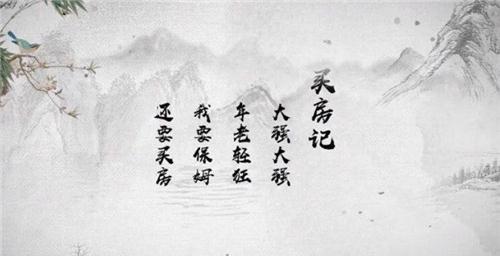 买房记
大强大强
年老轻狂
我要保姆
还要买房